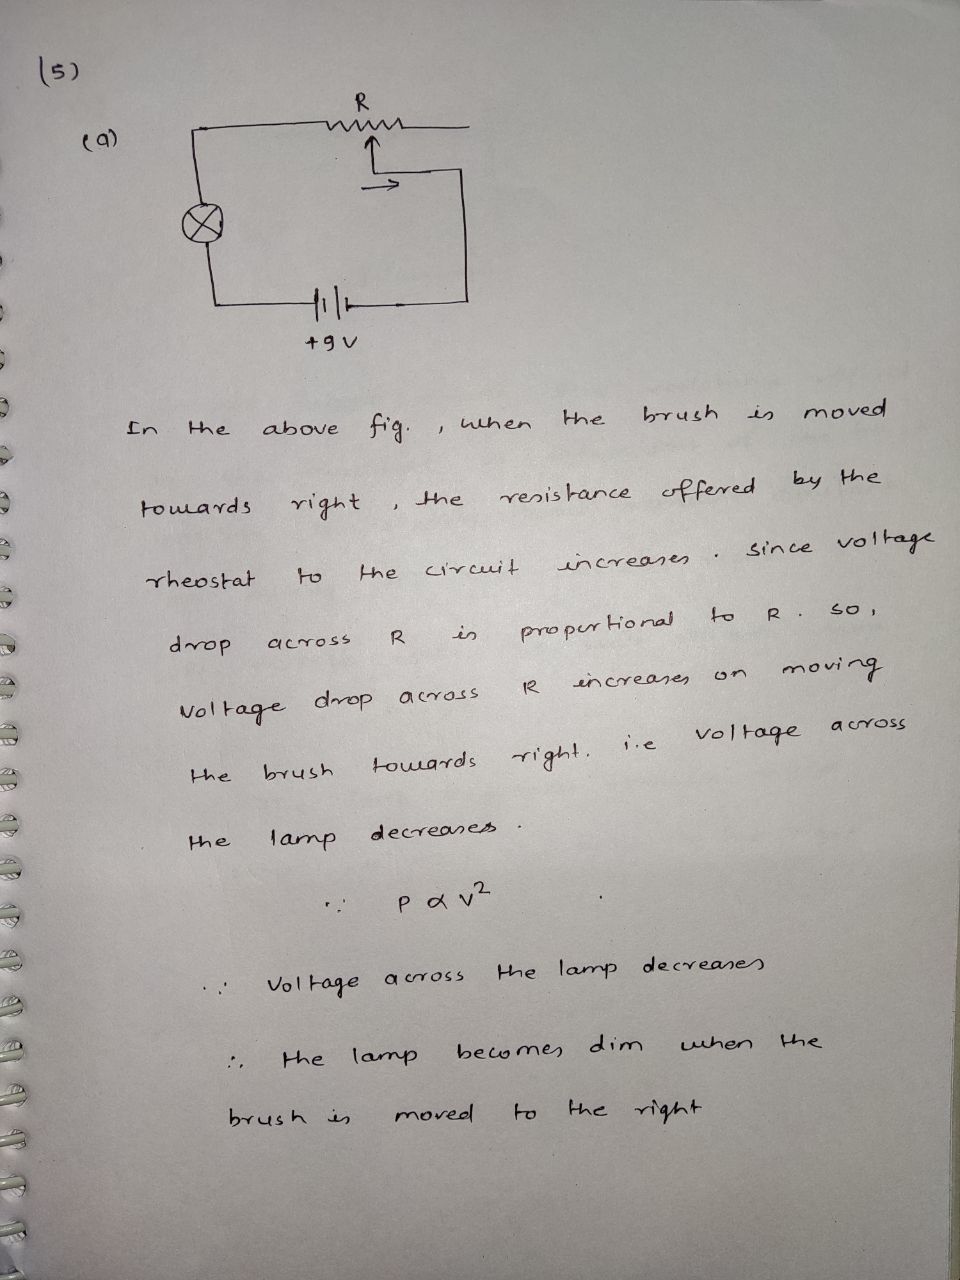 (5)
(a)
R
+9V
In the above fig. , when the brush is moved
towards right , the resistance offered by the
rheostat to the circuit increases . since voltage
drop across R is proportional to R . so ,
voltage drop across R increases on moving
the brush towards right. i.e voltage across
the lamp decreases .
∵ P ∝ V²
∵ Voltage across the lamp decreases
∴ the lamp becomes dim when the
brush is moved to the right